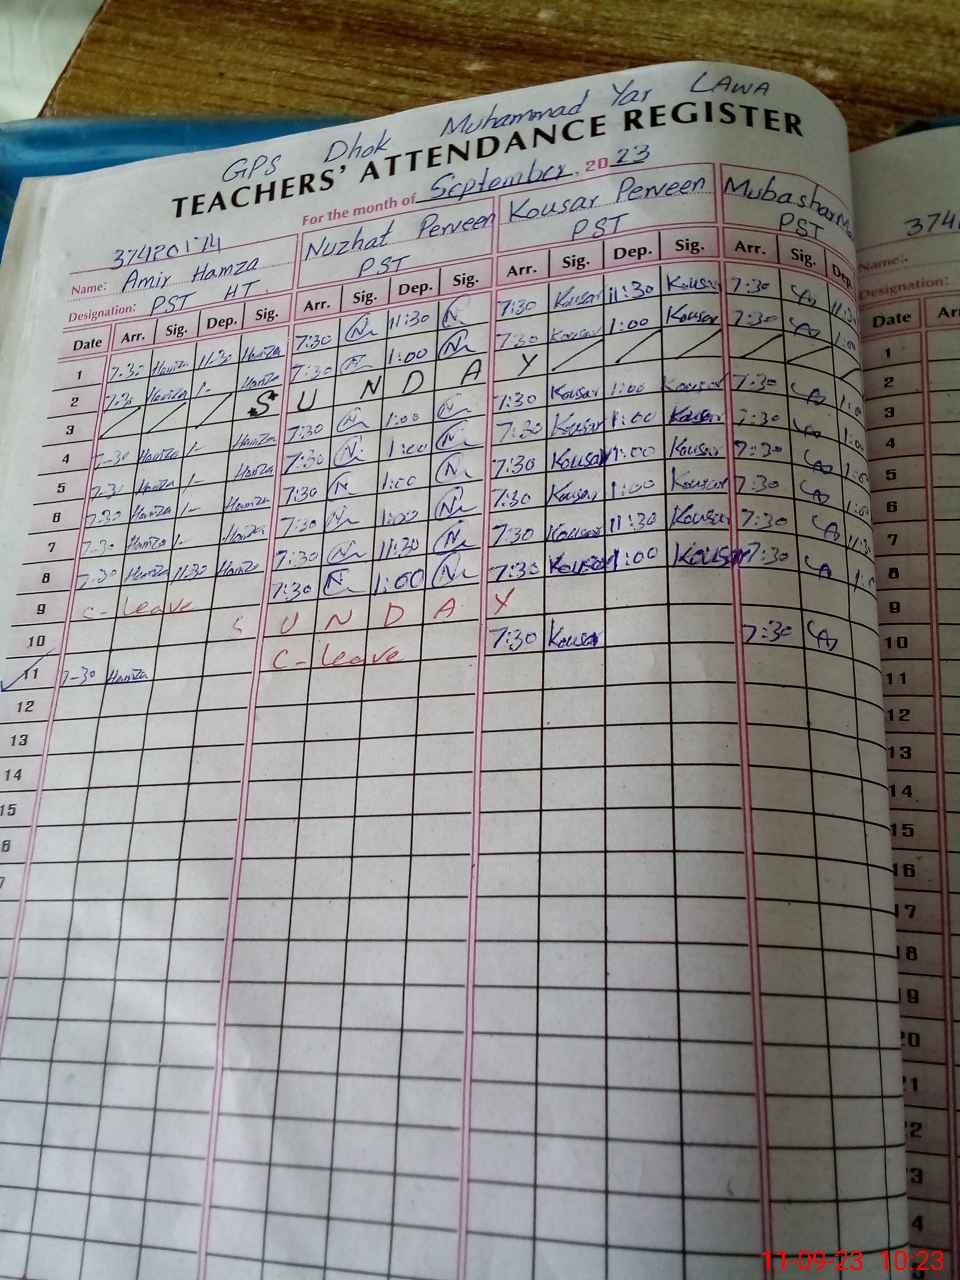 GPS Dhok Muhammad Yar LAWA
TEACHERS' ATTENDANCE REGISTER
For the month of September, 2023
37420174
Name: Amir Hamza Nuzhat Perveen Kousar Perveen Mubashar
Designation: PST HT PST PST PST
Date Arr. Sig. Dep. Sig. Arr. Sig. Dep. Sig. Arr. Sig. Dep. Sig. Arr. Sig. Dep.
1 7:30 Hamza 11:30 Hamza 7:30 11:30 7:30 Kousar 11:30 Kousar 7:30 11:30
2 7:30 Hamza 1- Hamza 7:30 1:00 7:30 Kousar 1:00 Kousar 7:30 1:00
3 S U N D A Y
4 7-30 Hamza 1- Hamza 7:30 1:00 7:30 Kousar 1:00 Kousar 7:30 1:00
5 7-30 Hamza 1- Hamza 7:30 1:00 7:30 Kousar 1:00 Kousar 7:30 1:00
6 7:30 Hamza 1- Hamza 7:30 1:00 7:30 Kousar 1:00 Kousar 7:30 1:00
7 7-30 Hamza 1- Hamza 7:30 1:00 7:30 Kousar 1:00 Kousar 7:30 1:00
8 7-30 Hamza 11:30 Hamza 7:30 11:30 7:30 Kousar 11:30 Kousar 7:30 11:30
9 C-leave 7:30 1:00 7:30 Kousar 1:00 Kousar 7:30
10 S U N D A Y
11 7-30 Hamza C-leave 7:30 Kousar 7:30
12
13
14
15
6
7
3742
Name:
Designation:
Date Arr
1
2
3
4
5
6
7
8
9
10
11
12
13
14
15
16
17
18
19
20
21
22
3
4
11-09-23 10:23